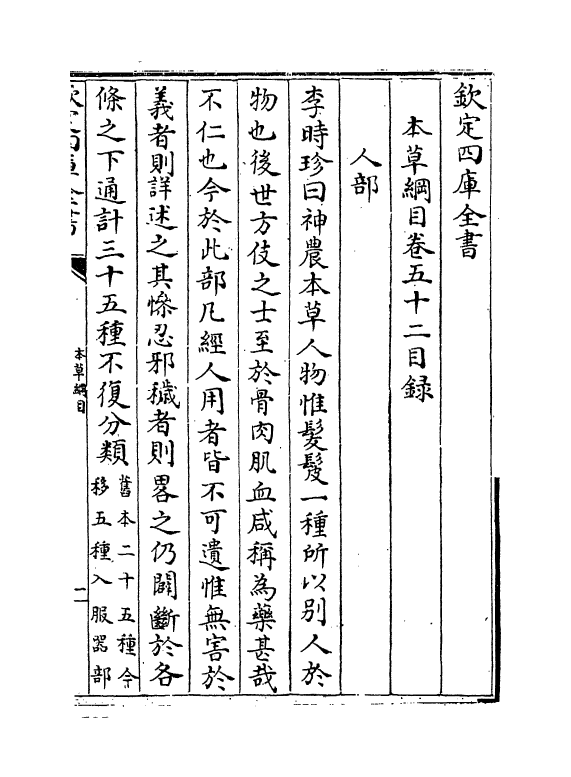 欽定四庫全書
本草綱目卷五十二目録
人部
李時珍曰神農本草人物惟髮髲一種所以别人於
物也後世方伎之士至於骨肉肌血咸稱為藥甚哉
不仁也今於此部凡經人用者皆不可遺惟無害於
義者則詳述之其慘忍邪穢者則畧之仍闢斷於各
條之下通計三十五種不復分類舊本二十五種今移五種入服器部
欽定四庫全書
本草綱目
一